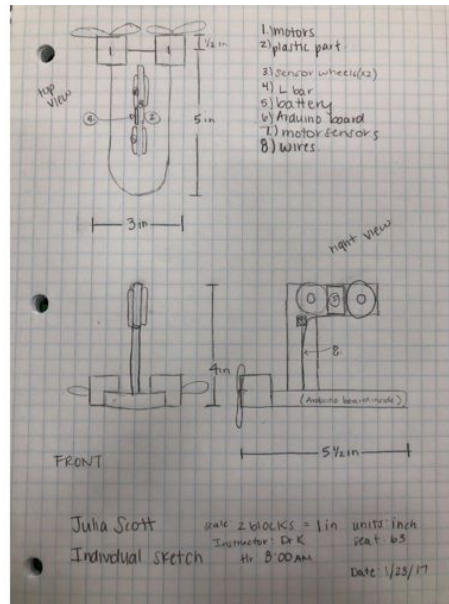 1 1
1/2 in
top view
5 in
4 2
3 in
1) motors
2) plastic part
3) sensor wheels (x2)
4) L bar
5) battery
6) Arduino board
7) motor sensors
8) wires
right view
4 in
3
8
(Arduino board inside)
5 1/2 in
FRONT
Julia Scott
Individual sketch
scale: 2 blocks = 1 in units: inch
Instructor: Dr K seat: 63
Hr 8:00 AM
Date: 1/23/17